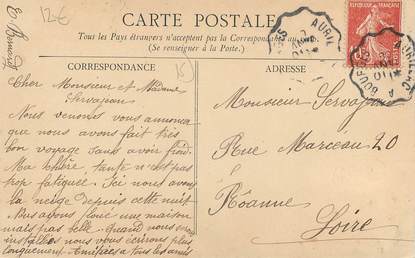 E. Bernard
12€
CARTE POSTALE
Tous les Pays étrangers n'acceptent pas la Correspondance au
(Se renseigner à la Poste.)
CORRESPONDANCE
ADRESSE
15
AURIL
REPUBLIQUE FRANÇAISE
Cher Monsieur et Madame
Servajean
Nous venons vous annoncer
que nous avons fait très
bon voyage sans avoir froid.
Ma chère tante n'est pas
trop fatiguée. Ici nous avons
la neige depuis cette nuit
Nous avons loué une maison
mais pas belle. quand nous serons
installés nous vous écrirons plus
longuement. Amitiées a tous les amis
Monsieur Servajean
Rue Marceau 20
Rôanne
Loire